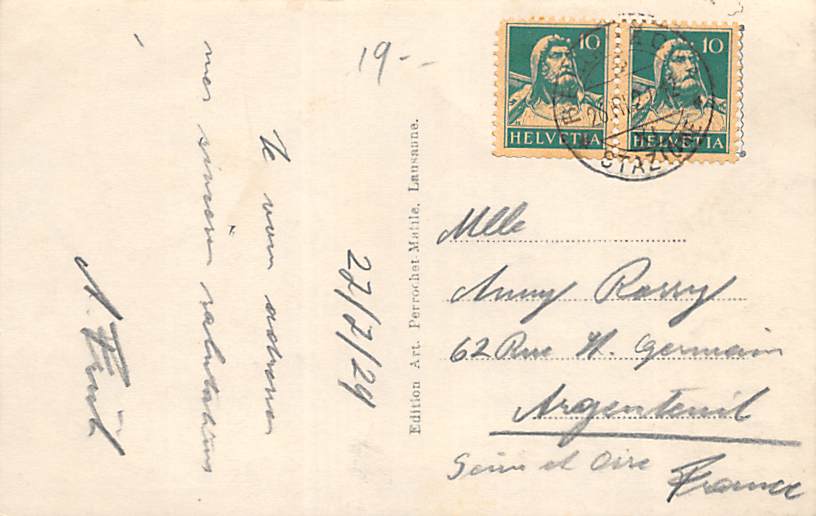 19--
Je vous adresse
mes sincères salutations
27/7/24
Edition Art. Perrochet-Matile, Lausanne.
10
HELVETIA
10
HELVETIA
STAZIONE
Mlle
Anny Rossy
62 Rue St. Germain
Argenteuil
Seine et Oise
France